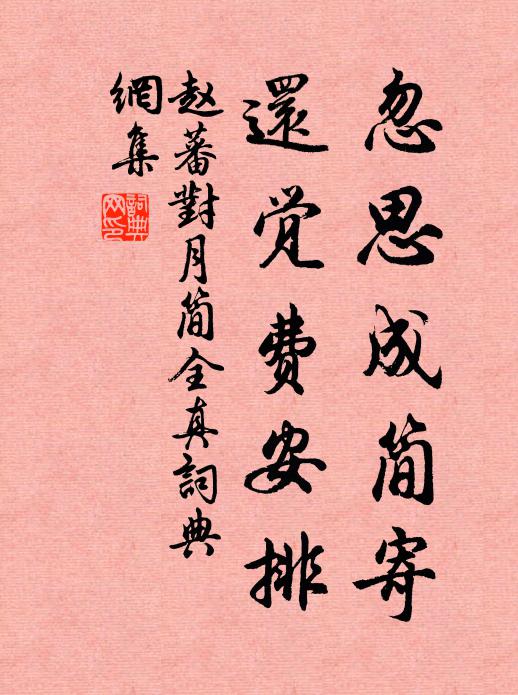 忽思成简寄
還觉费安排
赵蕃對月简全真詞典
網集
詞典
网印